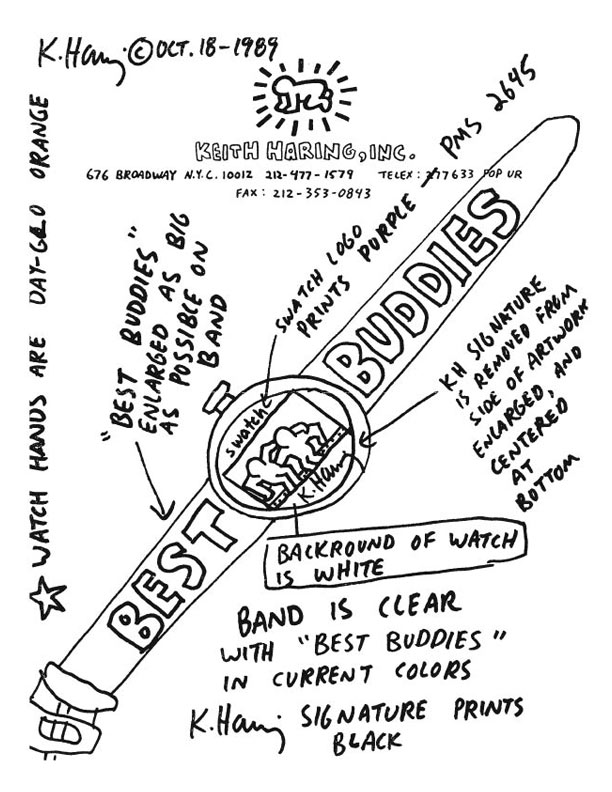 K. Haring © OCT. 18-1989
KEITH HARING, INC.
676 BROADWAY N.Y.C. 10012 212-477-1579 TELEX: 277633 POP UR
FAX: 212-353-0843
☆ WATCH HANDS ARE DAY-GLO ORANGE
"BEST BUDDIES"
ENLARGED AS BIG
AS POSSIBLE ON
BAND
SWATCH LOGO
PRINTS PURPLE - PMS 2645
BUDDIES
KH SIGNATURE
IS REMOVED FROM
SIDE OF ARTWORK
ENLARGED, AND
CENTERED
AT
BOTTOM
swatch
K. Haring
BEST
BACKROUND OF WATCH
IS WHITE
BAND IS CLEAR
WITH "BEST BUDDIES"
IN CURRENT COLORS
K. Haring SIGNATURE PRINTS
BLACK